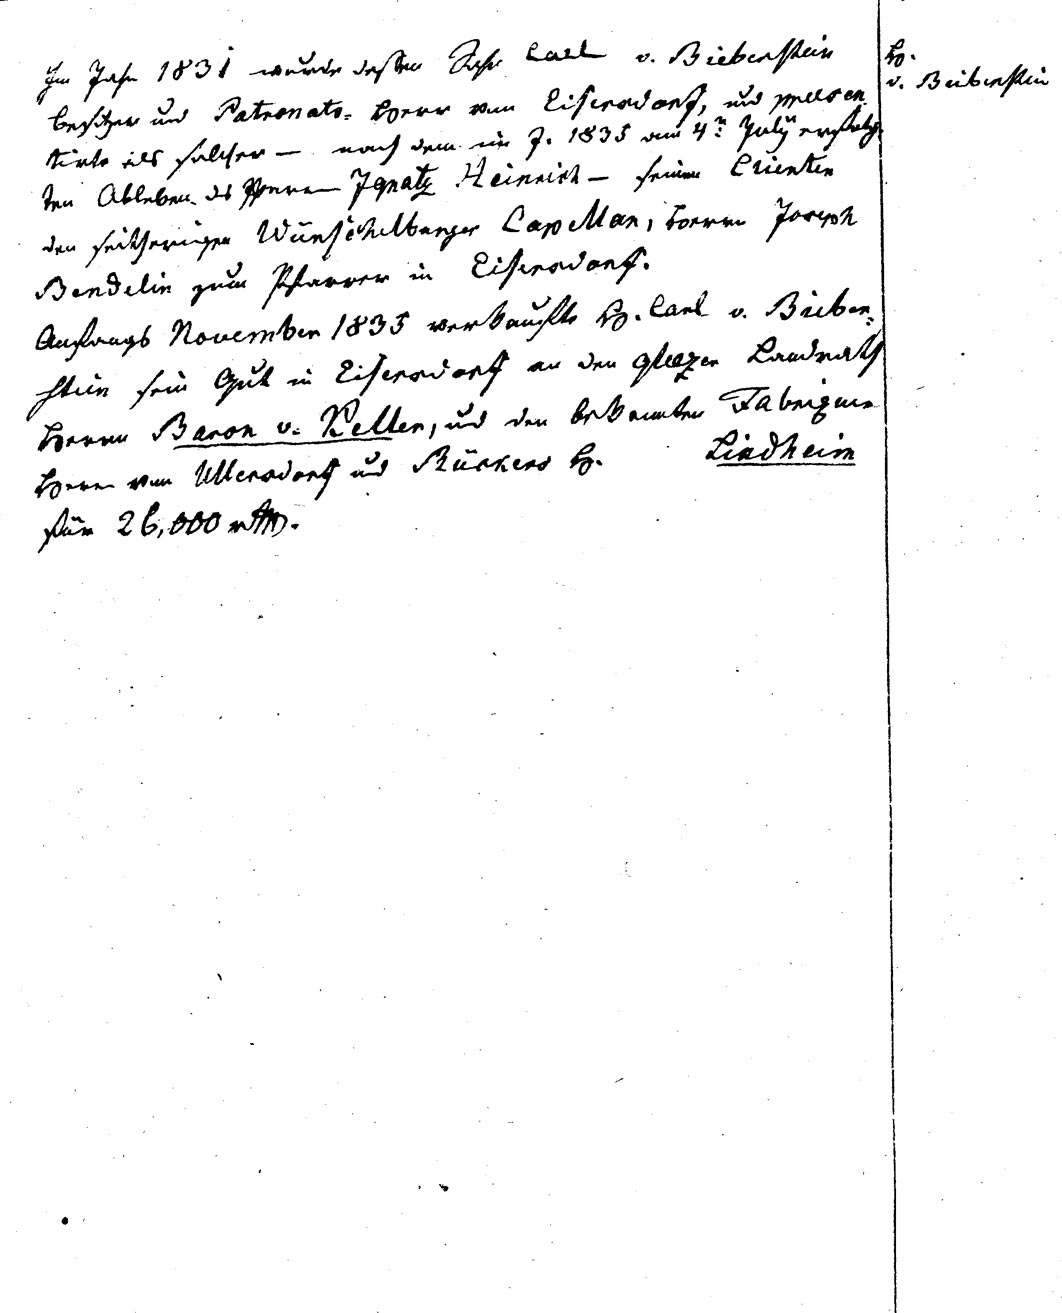 Im Jahr 1831 wurde dessen Sohn Carl v. Bieberstein
besitzer und Patronats-Herr von Eisersdorf, und presen
tirte als solcher — nach dem im J. 1835 am 4n July erfolg-
ten Ableben des Pfarrers Ignatz Heinrich — seinen Clienten
den seitherigen Wünschelburger Capellan, Herrn Joseph
Bendelin zum Pfarrer in Eisersdorf.
Anfangs November 1835 verkaufte H. Carl v. Bieber-
stein sein Gut in Eisersdorf an den Glazer Landrath
Herrn Baron v. Zeller, und den bekannten Fabriquen
Herrn von Ullersdorf und Rückers H. Lindheim
für 26,000 rth.
H.
v. Beiberstein